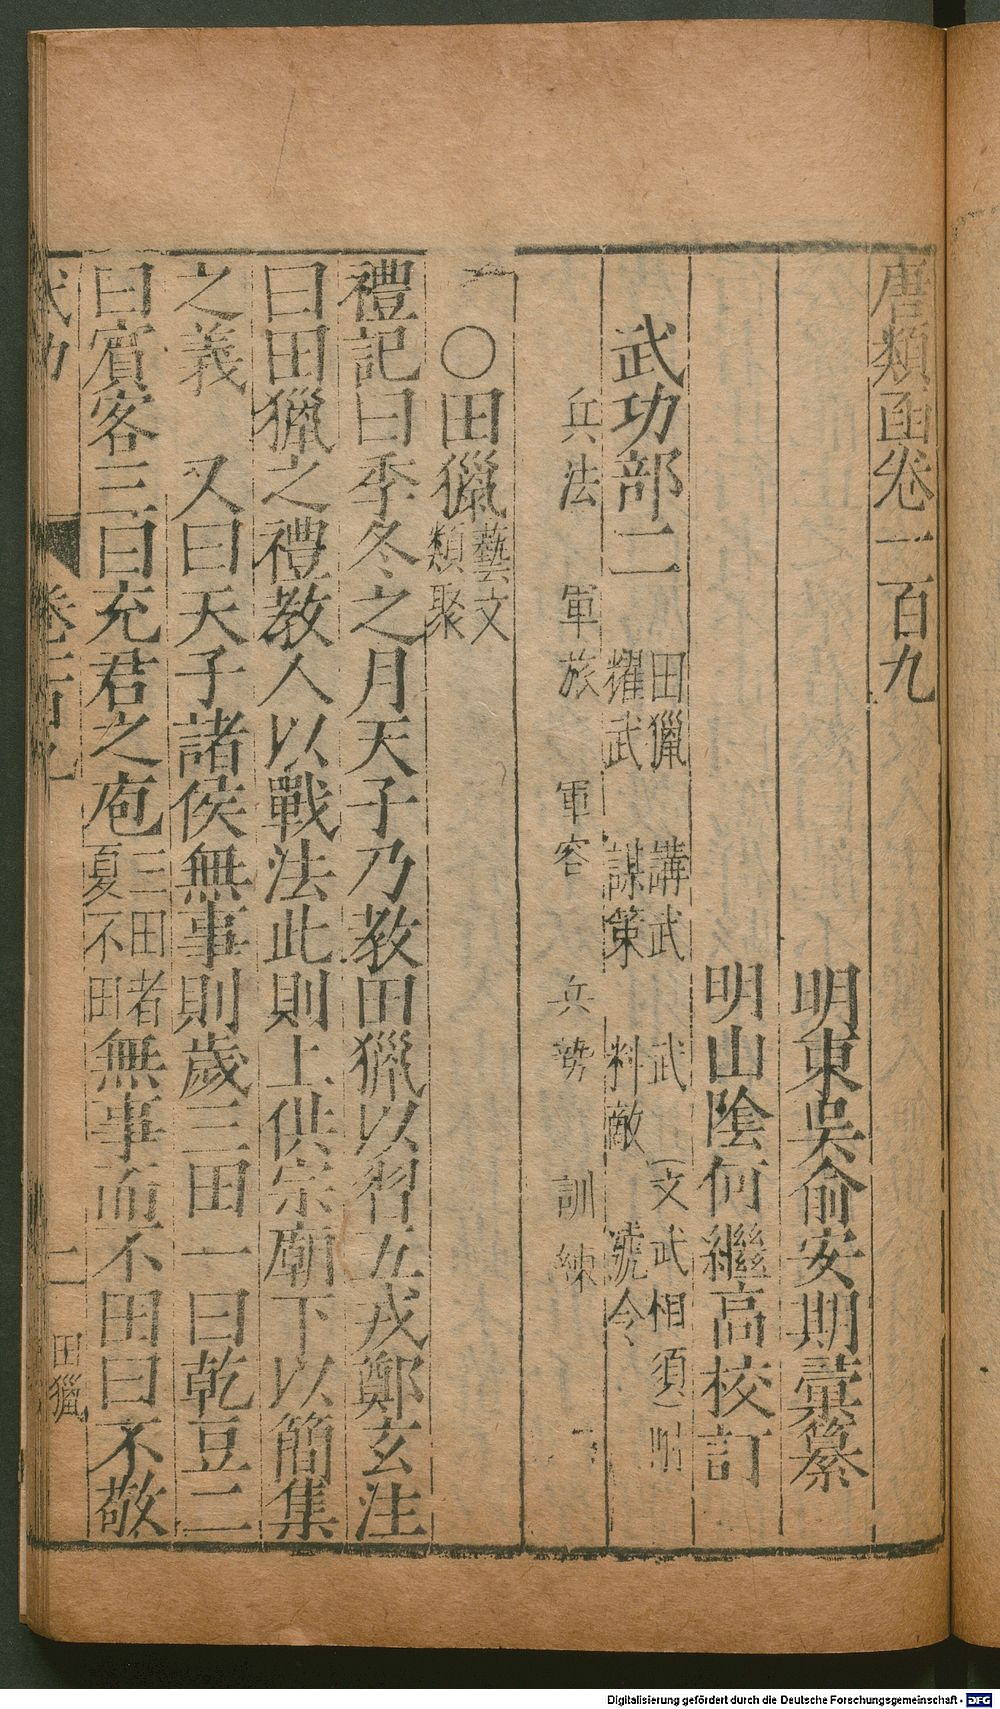 唐類函卷一百九
明東吳俞安期彙纂
明山陰何繼高校訂
武功部二 田獵 講武 武 文武相須 附
耀武 謀策 料敵 號令
兵法 軍旅 軍容 兵勢 訓練
一〇田獵 藝文類聚
禮記曰季冬之月天子乃教田獵以習五戎鄭玄注
曰田獵之禮教人以戰法此則上供宗廟下以簡集
之義 又曰天子諸侯無事則歲三田一曰乾豆二
曰賓客三曰充君之庖 三田者夏不田 無事而不田曰不敬
武功 卷一百九 二 田獵
Digitalisierung gefördert durch die Deutsche Forschungsgemeinschaft - DFG